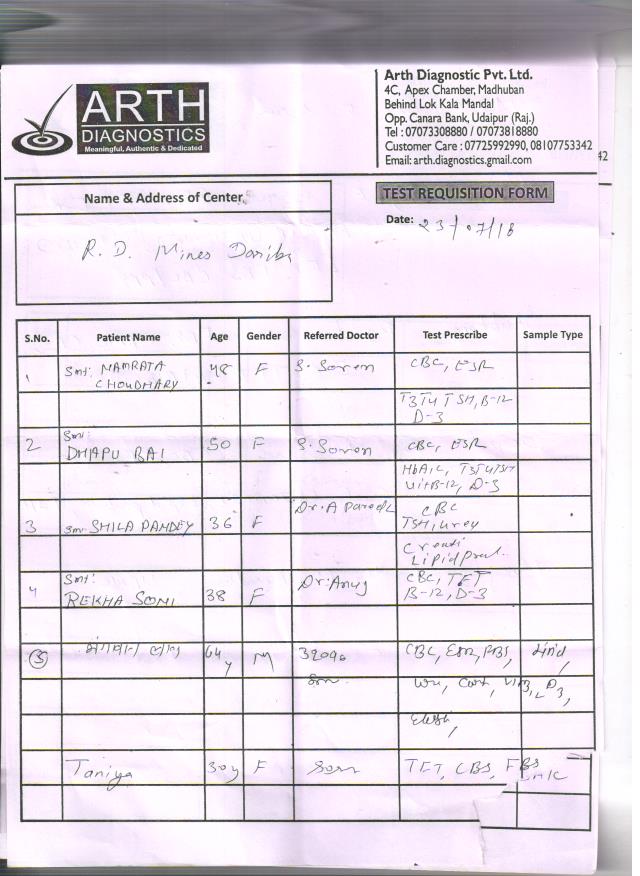 ARTH
DIAGNOSTICS
Meaningful, Authentic & Dedicated
Arth Diagnostic Pvt. Ltd.
4C, Apex Chamber, Madhuban
Behind Lok Kala Mandal
Opp. Canara Bank, Udaipur (Raj.)
Tel : 07073308880 / 07073818880
Customer Care : 07725992990, 08107753342
42
Email: arth.diagnostics.gmail.com
Name & Address of Center
TEST REQUISITION FORM
Date: 23/07/18
R. D. Mines Dariba
S.No. Patient Name Age Gender Referred Doctor Test Prescribe Sample Type
1 Smt: NAMRATA CHOUDHARY 48 F S. Soren CBC, ESR
T3T4 TSH, B-12
D-3
2 Smt: DHAPU BAI 50 F S. Soren CBC, ESR
HbA1C, T3T4TSH
Vit B-12, D-3
3 Smt SHILA PANDEY 36 F Dr. A CBC
TSH, Urey
Lipid
4 Smt: REKHA SONI 38 F Dr. Anuj CBC, TFT
B-12, D-3
5 64 y M CBC, ESR, RBS,
D3,
Taniya 30y F TFT, CBS, FBS